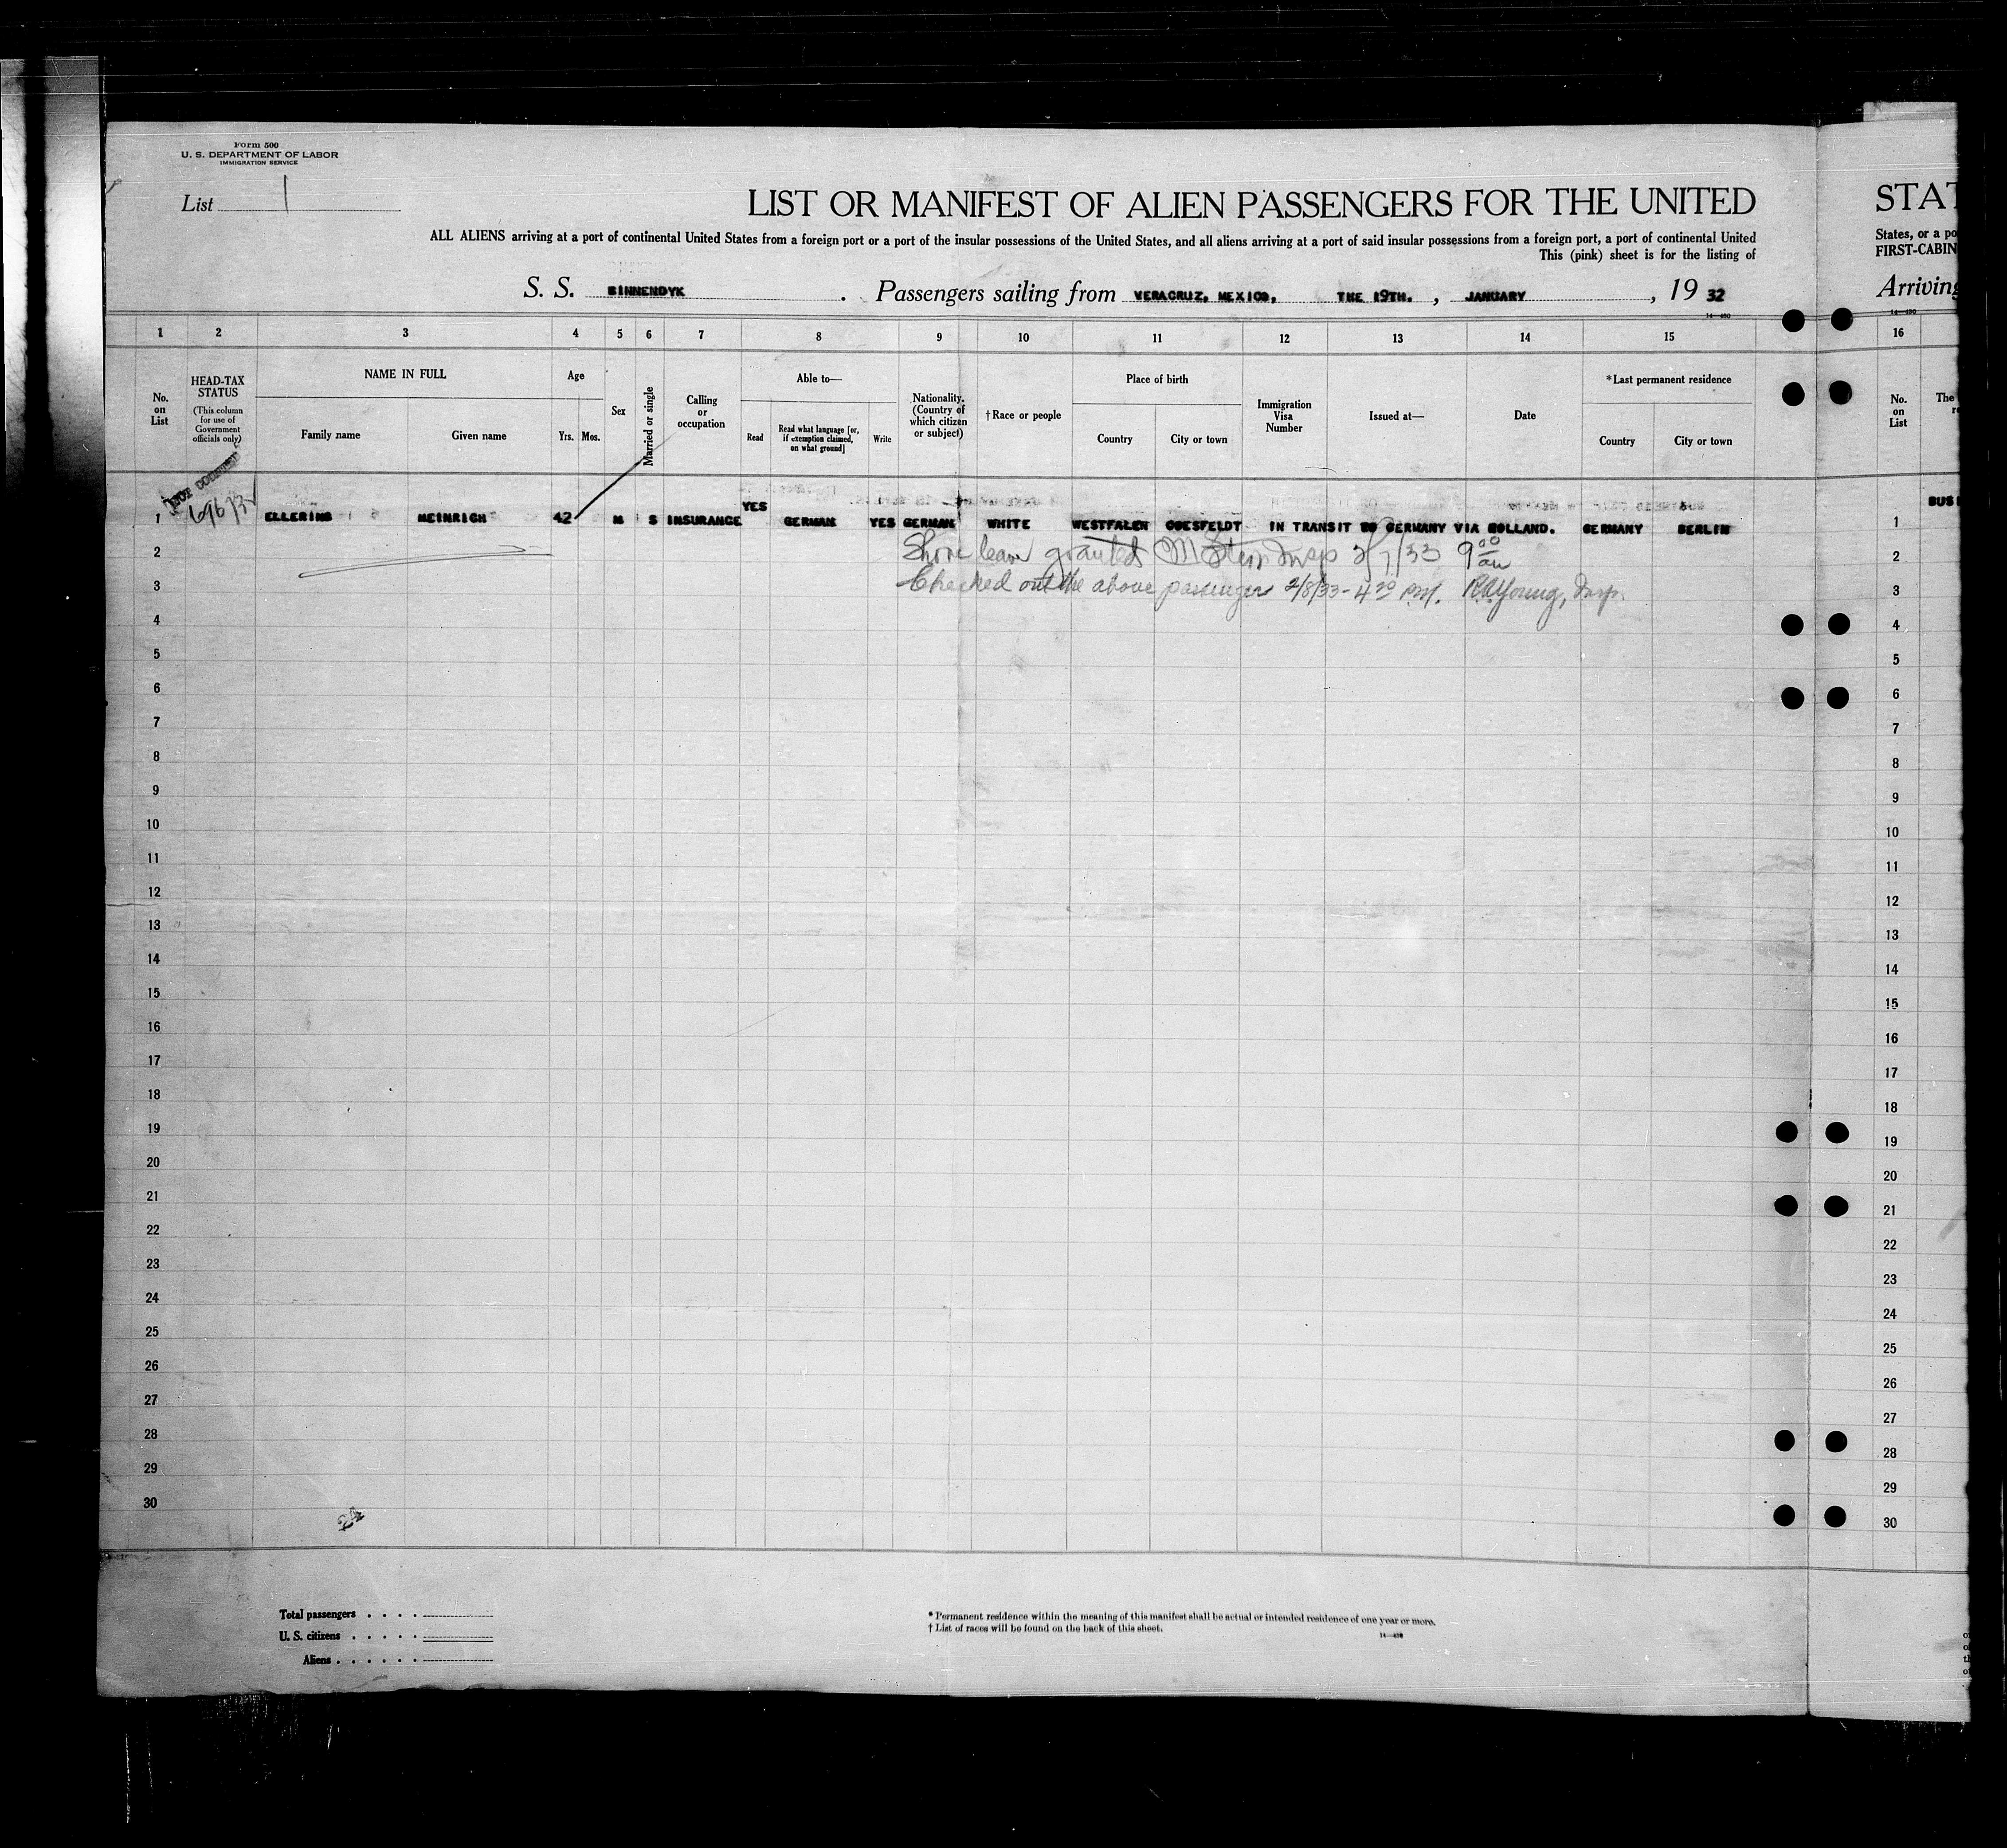 Form 500
U. S. DEPARTMENT OF LABOR
IMMIGRATION SERVICE
List 1
LIST OR MANIFEST OF ALIEN PASSENGERS FOR THE UNITED
ALL ALIENS arriving at a port of continental United States from a foreign port or a port of the insular possessions of the United States, and all aliens arriving at a port of said insular possessions from a foreign port, a port of continental United
This (pink) sheet is for the listing of
S. S. BINNENDYK . Passengers sailing from VERACRUZ, MEXICO, THE 19TH. , JANUARY , 19 32
14—430
1 2 3 4 5 6 7 8 9 10 11 12 13 14 15
No. on List
HEAD-TAX STATUS
(This column for use of Government officials only)
NAME IN FULL
Family name Given name
Age
Yrs. Mos.
Sex
Married or single
Calling or occupation
Able to—
Read
Read what language [or, if exemption claimed, on what ground]
Write
Nationality. (Country of which citizen or subject)
†Race or people
Place of birth
Country City or town
Immigration Visa Number
Issued at—
Date
*Last permanent residence
Country City or town
1 ELLERING HEINRICH 42 M S INSURANCE YES GERMAN YES GERMAN WHITE WESTFALEN COESFELDT IN TRANSIT TO GERMANY VIA HOLLAND. GERMANY BERLIN
2 Shore leave granted M Stern Insp 2/7/33 9 00 am
3 Checked out the above passenger 2/8/33 - 4 30 PM. R A Young, Insp.
4
5
6
7
8
9
10
11
12
13
14
15
16
17
18
19
20
21
22
23
24
25
26
27
28
29
30
24
Total passengers
U. S. citizens
Aliens
* Permanent residence within the meaning of this manifest shall be actual or intended residence of one year or more.
† List of races will be found on the back of this sheet.
STAT
States, or a po
FIRST-CABIN
Arriving
14—430
16
No. on List
The
1 BUSI
2
3
4
5
6
7
8
9
10
11
12
13
14
15
16
17
18
19
20
21
22
23
24
25
26
27
28
29
30